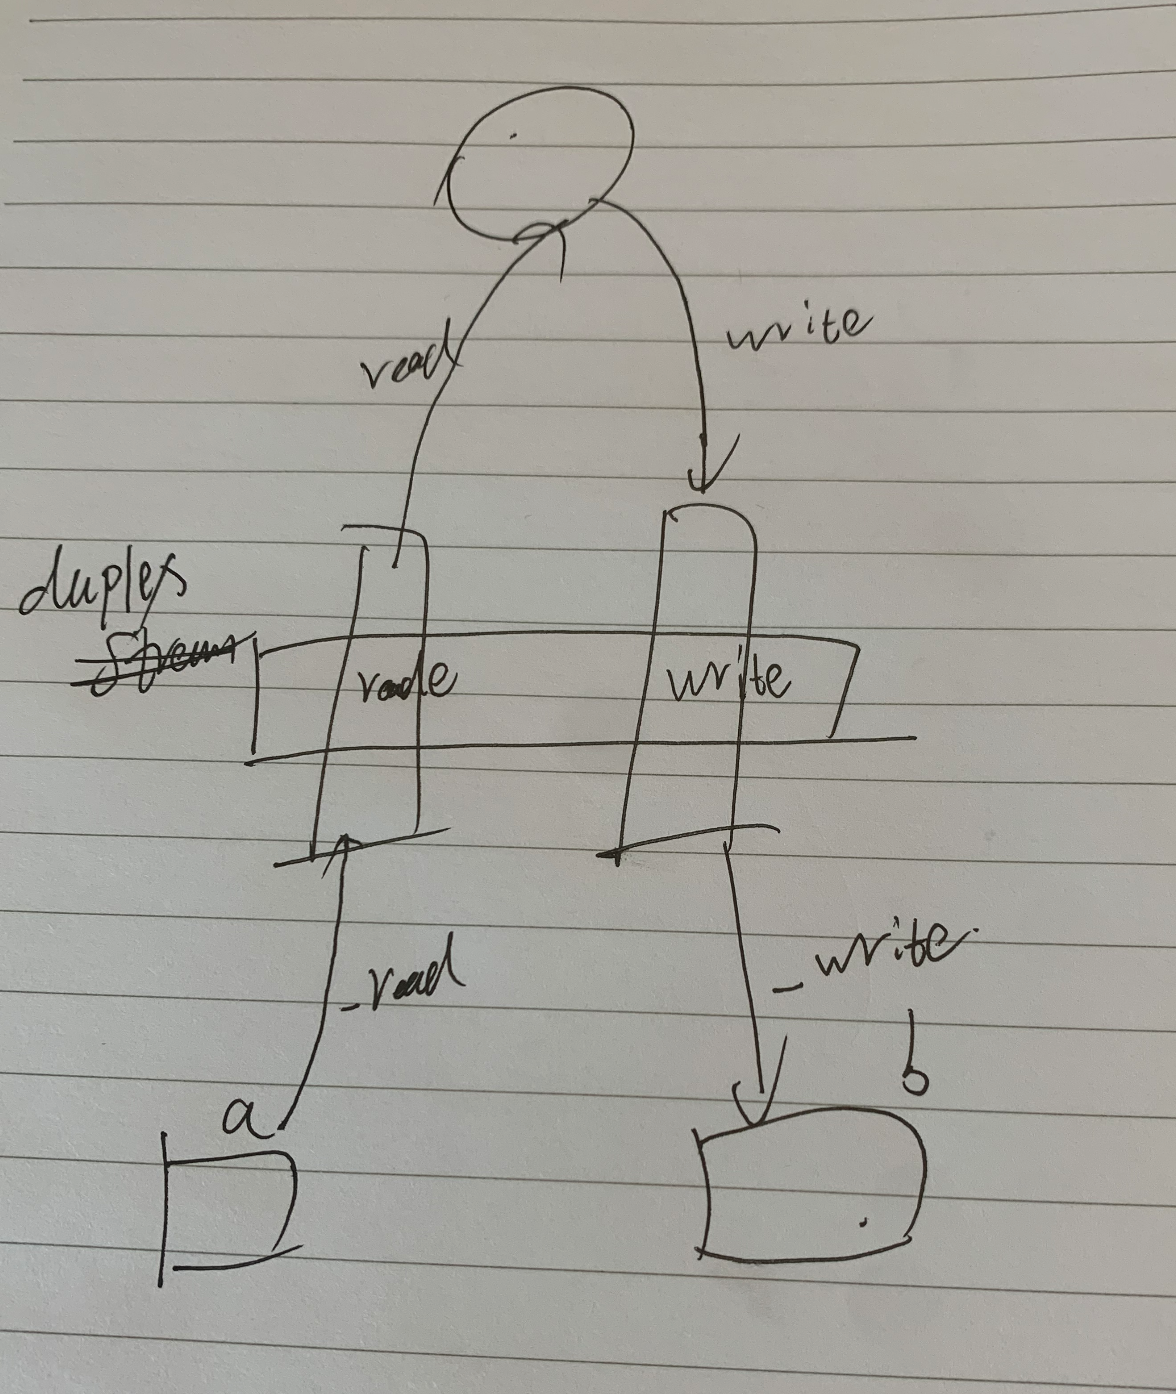 read
write
duplex
Stream
reade
write
_read
_write
b
a